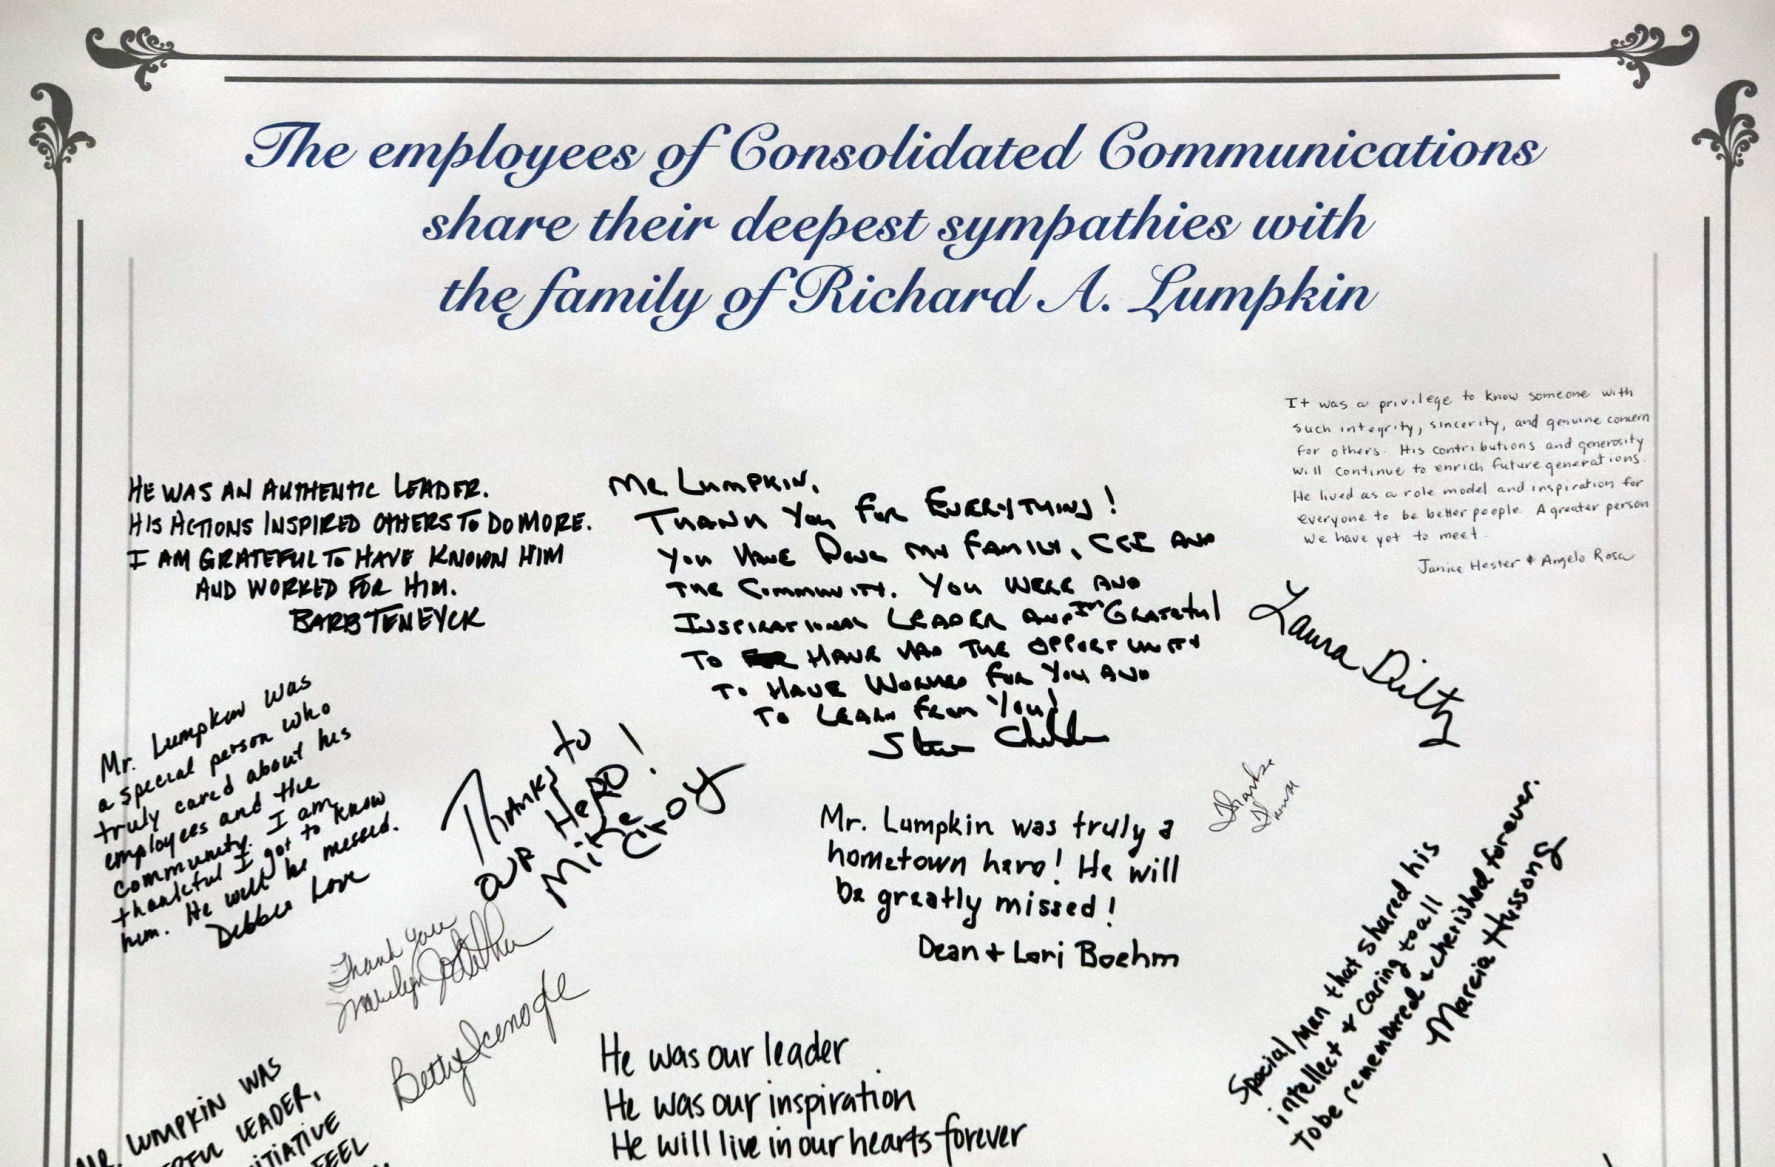 The employees of Consolidated Communications
share their deepest sympathies with
the family of Richard A. Lumpkin
It was a privilege to know someone with
such integrity, sincerity, and genuine concern
for others. His contributions and generosity
will continue to enrich future generations.
He lived as a role model and inspiration for
everyone to be better people. A greater person
we have yet to meet.
Janice Hester + Angelo Rosa
HE WAS AN AUTHENTIC LEADER.
HIS ACTIONS INSPIRED OTHERS TO DO MORE.
I AM GRATEFUL TO HAVE KNOWN HIM
AND WORKED FOR HIM.
BARB TENEYCK
MR. LUMPKIN,
THANK YOU FOR EVERYTHING!
YOU HAVE DONE MY FAMILY, CCI AND
THE COMMUNITY. YOU WERE AND
INSPIRATIONAL LEADER AND I'm GRATEFUL
TO HAVE HAD THE OPPORTUNITY
TO HAVE WORKED FOR YOU AND
TO LEARN FROM YOU!
Steve
Laura Diltz
Mr. Lumpkin was
a special person who
truly cared about his
employees and the
community. I am
thankful I got to know
him. He will be missed.
Debbie Love
Thanks to
our HERO!
Mike
Croy
Thanks
Mr. Lumpkin was truly a
hometown hero! He will
be greatly missed!
Dean + Lori Boehm
Special man that shared his
intellect + caring to all
To be remembered + cherished forever.
Marcia Hussong
Thank you
Marilyn
Betty Icenogle
He was our leader
He was our inspiration
He will live in our hearts forever
MR. LUMPKIN WAS
LEADER,
FEEL